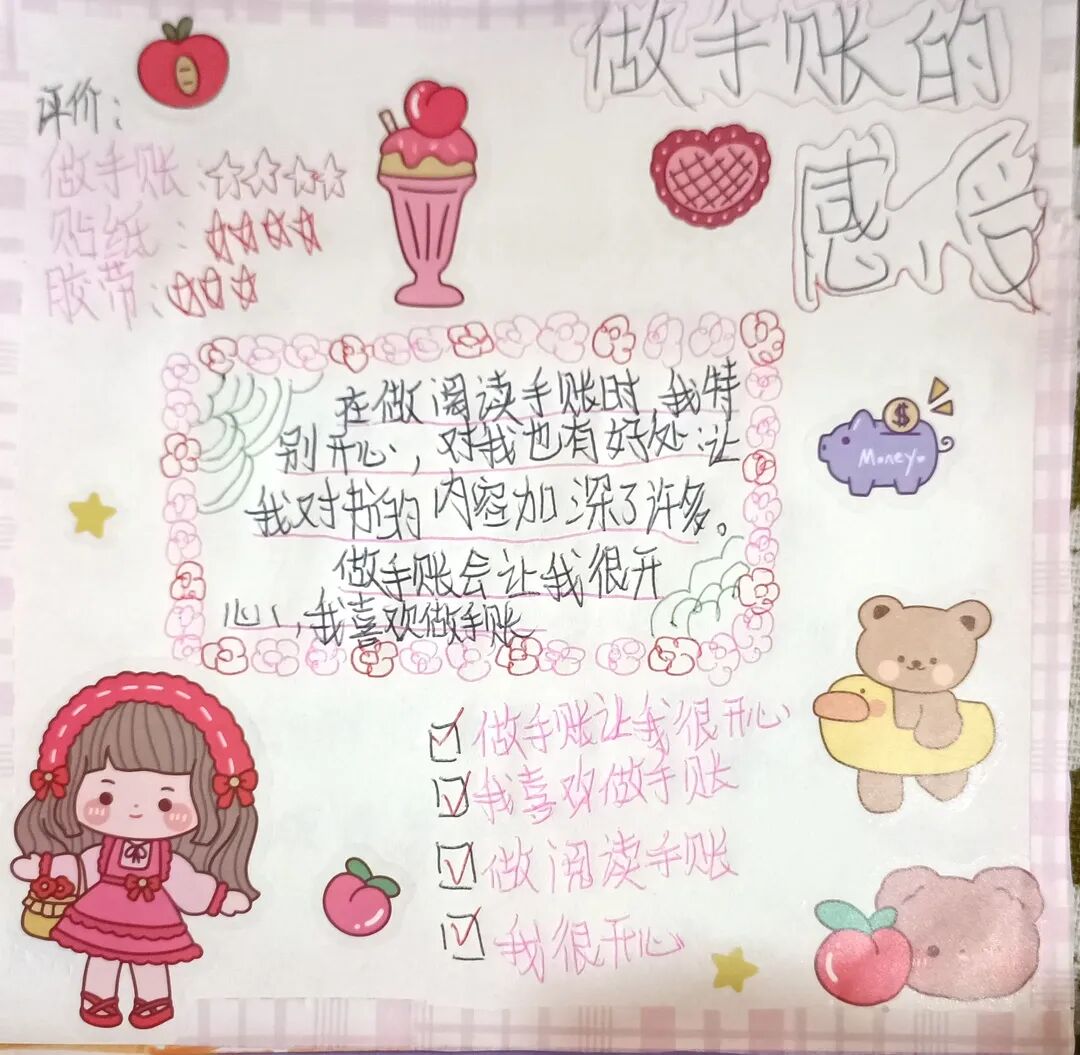 做手账的
感受
评价：
做手账：☆☆☆☆
贴纸：☆☆☆☆
胶带：☆☆☆
在做阅读手账时，我特
别开心，对我也有好处：让
我对书的内容加深了许多。
做手账会让我很开
心，我喜欢做手账
$
Money
☑做手账让我很开心
☑我喜欢做手账
☑做阅读手账
☑我很开心